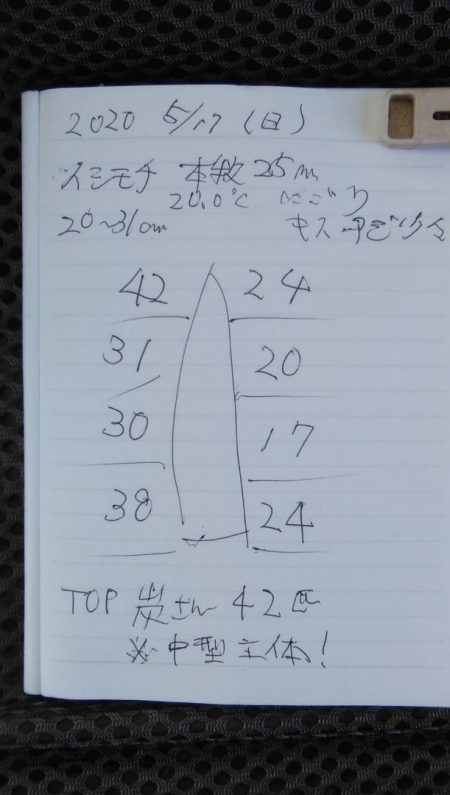 2020 5/17 (日)
イシモチ 本牧 25m
20.0℃ にごり
20~31cm キス
42 24
31 20
30 17
38 24
TOP 炭さん 42匹
※中型主体!